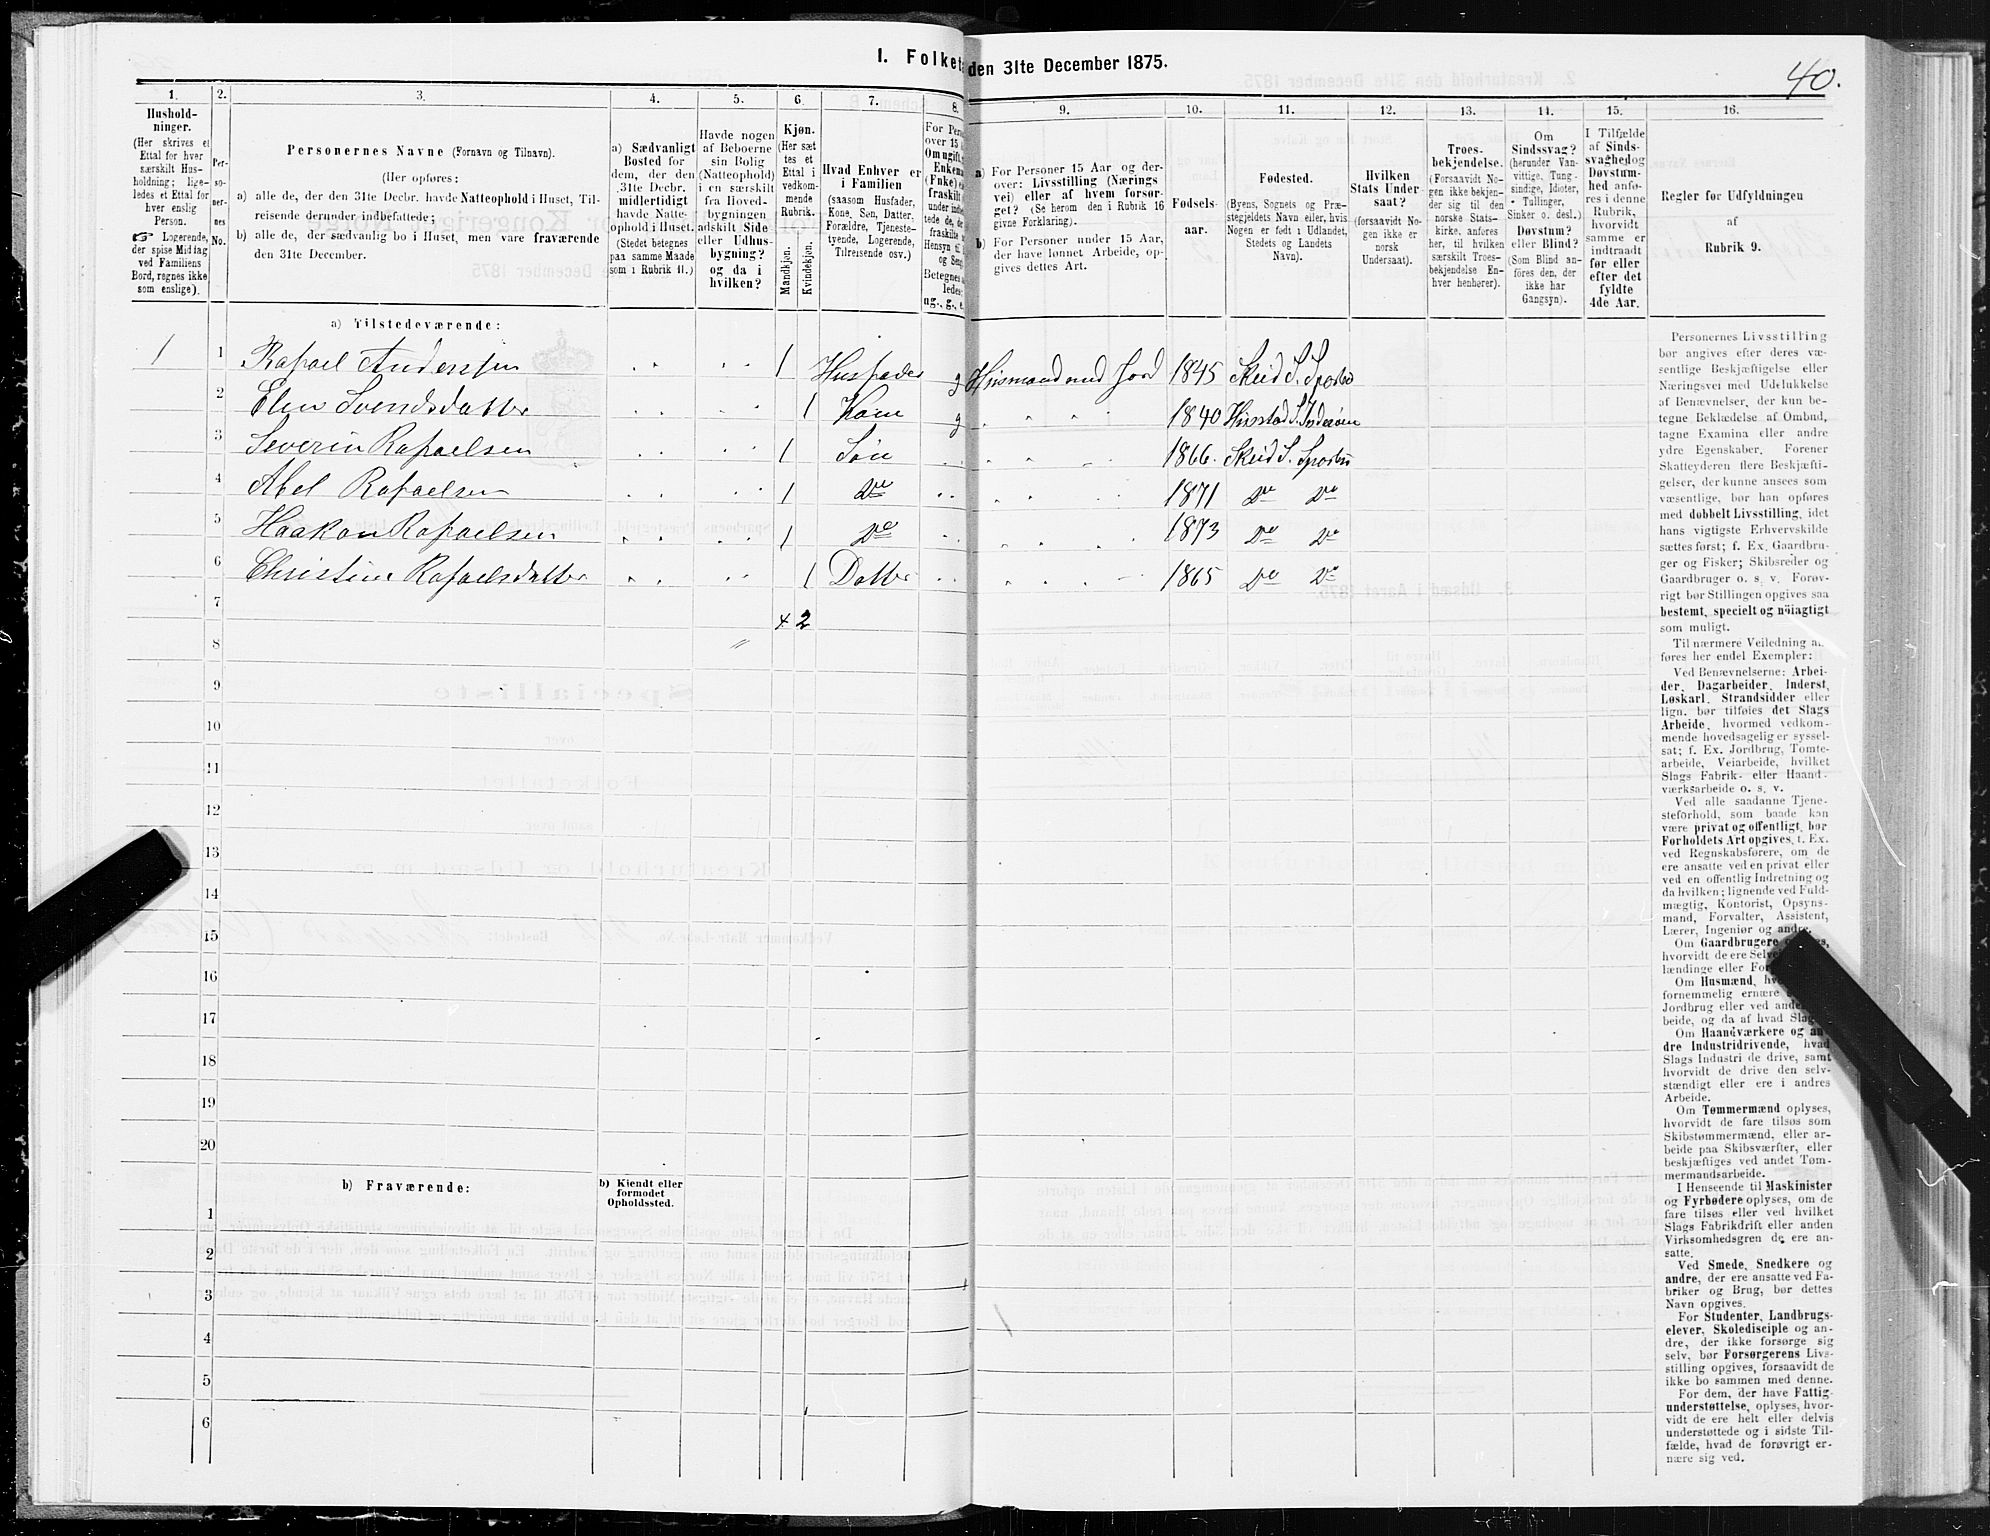 I. Folket den 31te December 1875.
40.
1. 2. 3. 4. 5. 6. 7. 8. 9. 10. 11. 12. 13. 14. 15. 16.
Hushold-
ninger.
(Her skrives et
Ettal for hver
særskilt Hus-
holdning; lige-
ledes et Ettal for
hver enslig
Person.
☞ Logerende,
der spise Middag
ved Familiens
Bord, regnes ikke
som enslige).
Per-
so-
ner-
nes
No.
Personernes Navne (Fornavn og Tilnavn).
(Her opføres:
a) alle de, der den 31te Decbr. havde Natteophold i Huset, Til-
reisende derunder indbefattede;
b) alle de, der sædvanlig bo i Huset, men vare fraværende
den 31te December.
a) Sædvanligt
Bosted for
dem, der den
31te Decbr.
midlertidigt
havde Natte-
ophold i Huset.
(Stedet betegnes
paa samme Maade
som i Rubrik 11.)
Havde nogen
af Beboerne
sin Bolig
(Natteophold)
i en særskilt
fra Hoved-
bygningen
adskilt Side
eller Udhus-
bygning?
og da i
hvilken?
Kjøn.
(Her sæt
tes et
Ettal i
vedkom-
mende
Rubrik.
Mandkjøn.
Kvindekjøn.
Hvad Enhver er
i Familien
(saasom Husfader,
Kone, Søn, Datter,
Forældre, Tjeneste-
tyende, Logerende,
Tilreisende osv.)
For Pers
over 15
Om ugift,
Enkema
(Enke) e
fraskilt
under indbe
tede de, d
fraskilte
Hensyn ti
og Seng
Betegnes
ledes:
ug., g., e.
a) For Personer 15 Aar og der-
over: Livsstilling (Nærings
vei) eller af hvem forsør-
get? (Se herom den i Rubrik 16
givne Forklaring).
b) For Personer under 15 Aar,
der have lønnet Arbeide, op-
gives dettes Art.
Fødsels-
aar.
Fødested.
(Byens, Sognets og Præ-
stegjeldets Navn eller, hvis
Nogen er født i Udlandet,
Stedets og Landets
Navn).
Hvilken
Stats Under-
saat?
(forsaavidt No-
gen ikke er
norsk
Undersaat).
Troes-
bekjendelse.
(Forsaavidt No-
gen ikke bekjen-
der sig til den
norske Stats-
kirke, anføres
her, til hvilken
særskilt Troes-
bekjendelse En-
hver henhører).
Om
Sindssvag?
(herunder Van-
vittige, Tung-
sindige, Idioter,
Tullinger,
Sinker o. desl.)
Døvstum?
eller Blind?
(Som Blind an-
føres den, der
ikke har
Gangsyn).
I Tilfælde
af Sinds-
svaghed og
Døvstum-
hed anfø-
res i denne
Rubrik,
hvorvidt
samme er
indtraadt
før eller
efter det
fyldte
4de Aar.
Regler for Udfyldningen
af
Rubrik 9.
a) Tilstedeværende:
1 1 Rafael Andersen 1 Husfader g Husmand med Jord 1845 Skeid S. Sparbu
2 Elen Svendsdatter 1 Kone g 1840 Hustad S. Inderøen
3 Severin Rafaelsen 1 Søn 1866. Skeid S. Sparbu
4 Abel Rafaelsen 1 Do 1871 Do Do
5 Haakon Rafaelsen 1 Do 1873 Do Do
6 Christine Rafaelsdatter 1 Datter 1865 Do Do
7 4 2
8
9
10
11
12
13
14
15
16
17
18
19
20
b) Fraværende:
b) Kjendt eller
formodet
Opholdssted.
1
2
3
4
5
6
Personernes Livsstilling
bør angives efter deres væ-
sentlige Beskjæftigelse eller
Næringsvei med Udelukkelse
af Benævnelser, der kun be-
tegne Beklædelse af Ombud,
tagne Examina eller andre
ydre Egenskaber. Forener
Skatteyderen flere Beskjæfti-
gelser, der kunne ansees som
væsentlige, bør han opføres
med dobbelt Livsstilling, idet
hans vigtigste Erhvervskilde
sættes først; f. Ex. Gaardbru-
ger og Fisker; Skibsreder og
Gaardbruger o. s. v. Forøv-
rigt bør Stillingen opgives saa
bestemt, specielt og nöiagtigt
som muligt.
Til nærmere Veiledning an-
føres her endel Exempler:
Ved Benævnelserne: Arbei-
der, Dagarbeider, Inderst,
Løskarl, Strandsidder eller
lign. bør tilføies det Slags
Arbeide, hvormed vedkom-
mende hovedsagelig er syssel-
sat; f. Ex. Jordbrug, Tomte-
arbeide, Veiarbeide, hvilket
Slags Fabrik- eller Haand-
værksarbeide o. s. v.
Ved alle saadanne Tjene-
steforhold, som baade kan
være privat og offentligt, bør
Forholdets Art opgives, f. Ex.
ved Regnskabsførere, om de
ere ansatte ved en privat eller
ved en offentlig Indretning og
da hvilken; lignende ved Fuld-
mægtig, Kontorist, Opsyns-
mand, Forvalter, Assistent,
Lærer, Ingeniør og andre.
Om Gaardbrugere
hvorvidt de ere
lændinge eller
Om Husmænd,
fornemmelig ernære
Jordbrug eller ved
beide, og da af hvad Slags
Om Haandværkere og an-
dre Industridrivende, hvad
Slags Industri de drive, samt
hvorvidt de drive den selv-
stændigt eller ere i andres
Arbeide.
Om Tømmermænd oplyses,
hvorvidt de fare tilsøs som
Skibstømmermænd, eller ar-
beide paa Skibsværfter, eller
beskjæftiges ved andet Tøm-
mermandsarbeide.
I Henseende til Maskinister
og Fyrbødere oplyses, om de
fare tilsøs eller ved hvilket
Slags Fabrikdrift eller anden
Virksomhedsgren de ere an-
satte.
Ved Smede, Snedkere og
andre, der ere ansatte ved Fa-
briker og Brug, bør dettes
Navn opgives.
For Studenter, Landbrugs-
elever, Skoledisciple og an-
dre, der ikke forsørge sig
selv, bør Forsørgerens Livs-
stilling opgives, forsaavidt de
ikke bo sammen med denne.
For dem, der have Fattig-
understøttelse, oplyses, hvor-
vidt de ere helt eller delvis
understøttede og i sidste Til-
fælde, hvad de forøvrigt er-
nære sig ved.